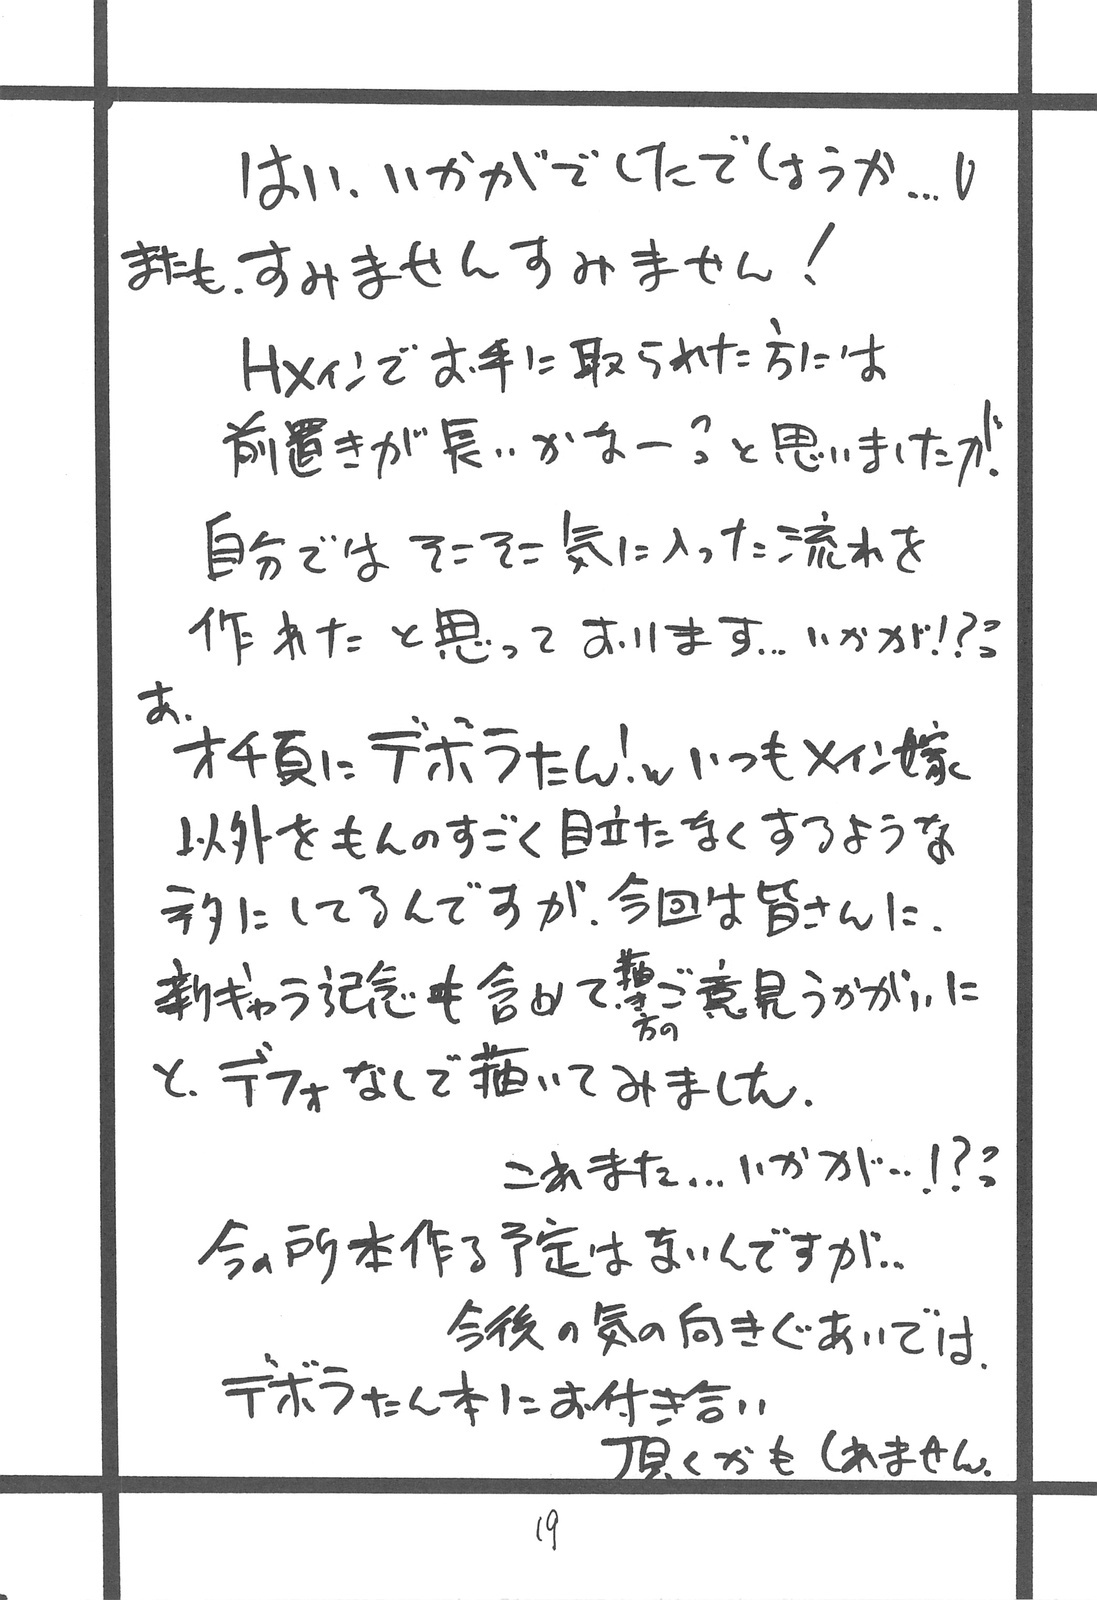 はい、いかがでしたでしょうか…
またも、すみませんすみません!
Hメインでお手に取られた方には
前置きが長いかなーっと思いましたが、
自分ではそこそこ気に入った流れを
作れたと思っております… いかが!?っ
あ、
オチ頁にデボラたん!w いつもメイン嫁
以外をもんのすごく目立たなくするような
ネタにしてるんですが、今回は皆さんに、
新ギャラ記念も含めて、描き方のご意見うかがいに
と、デフォなしで描いてみました。
これまた…いかが…!?っ
今の所本作る予定はないんですが…
今後の気の向きぐあいでは、
デボラたん本にお付き合い
頂くかもしれません。
19